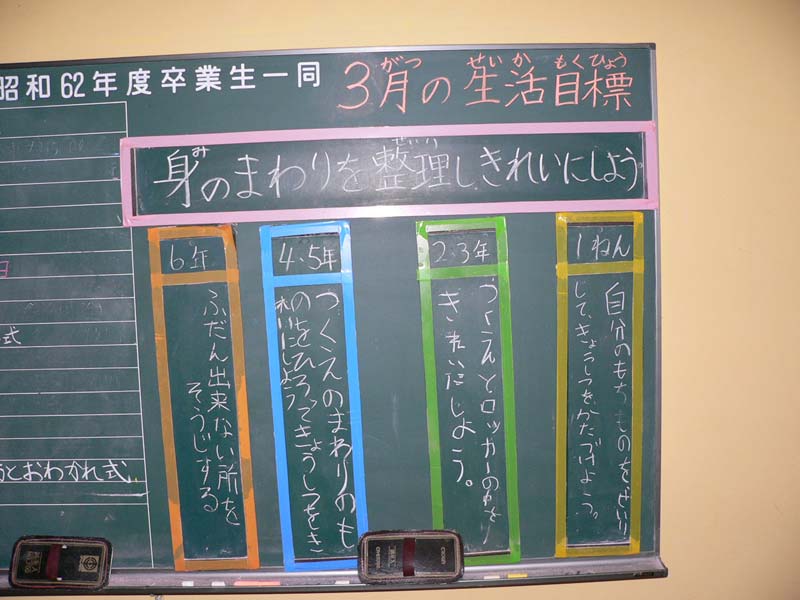 昭和62年度卒業生一同
3月の生活目標
がつ せいかつ もくひょう
身のまわりを整理しきれいにしよう
み せいり
1ねん
自分のもちものをせいり
して、きょうしつをかたづけよう。
2・3年
つくえとロッカーの中を
きれいにしよう。
4・5年
つくえのまわりのも
のをひろってきょうしつをき
れいにしよう
6年
ふだん出来ない所を
そうじする
日
式
とおわかれ式